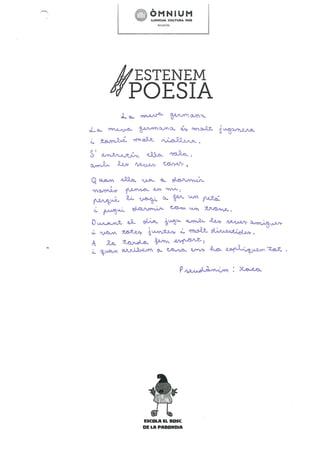 ÒMNIUM
LLENGUA CULTURA PAÍS
ESTENEM
POESIA
La meva germana
La meva germana és molt juganera
i també molt riallera.
S'entretén ella sola,
amb les seves coses,
Quan ella va a dormir
només pensa en mi,
perquè li vagi a fer un petó
i pugui dormir com un tronc.
Durant el dia juga amb les seves amigues
i van totes juntes i molt divertides.
A la tarda fem esport,
i quan arribem a casa ens ho expliquem tot.
Pseudònim : Xoca
ESCOLA EL BOSC
DE LA PABORDIA